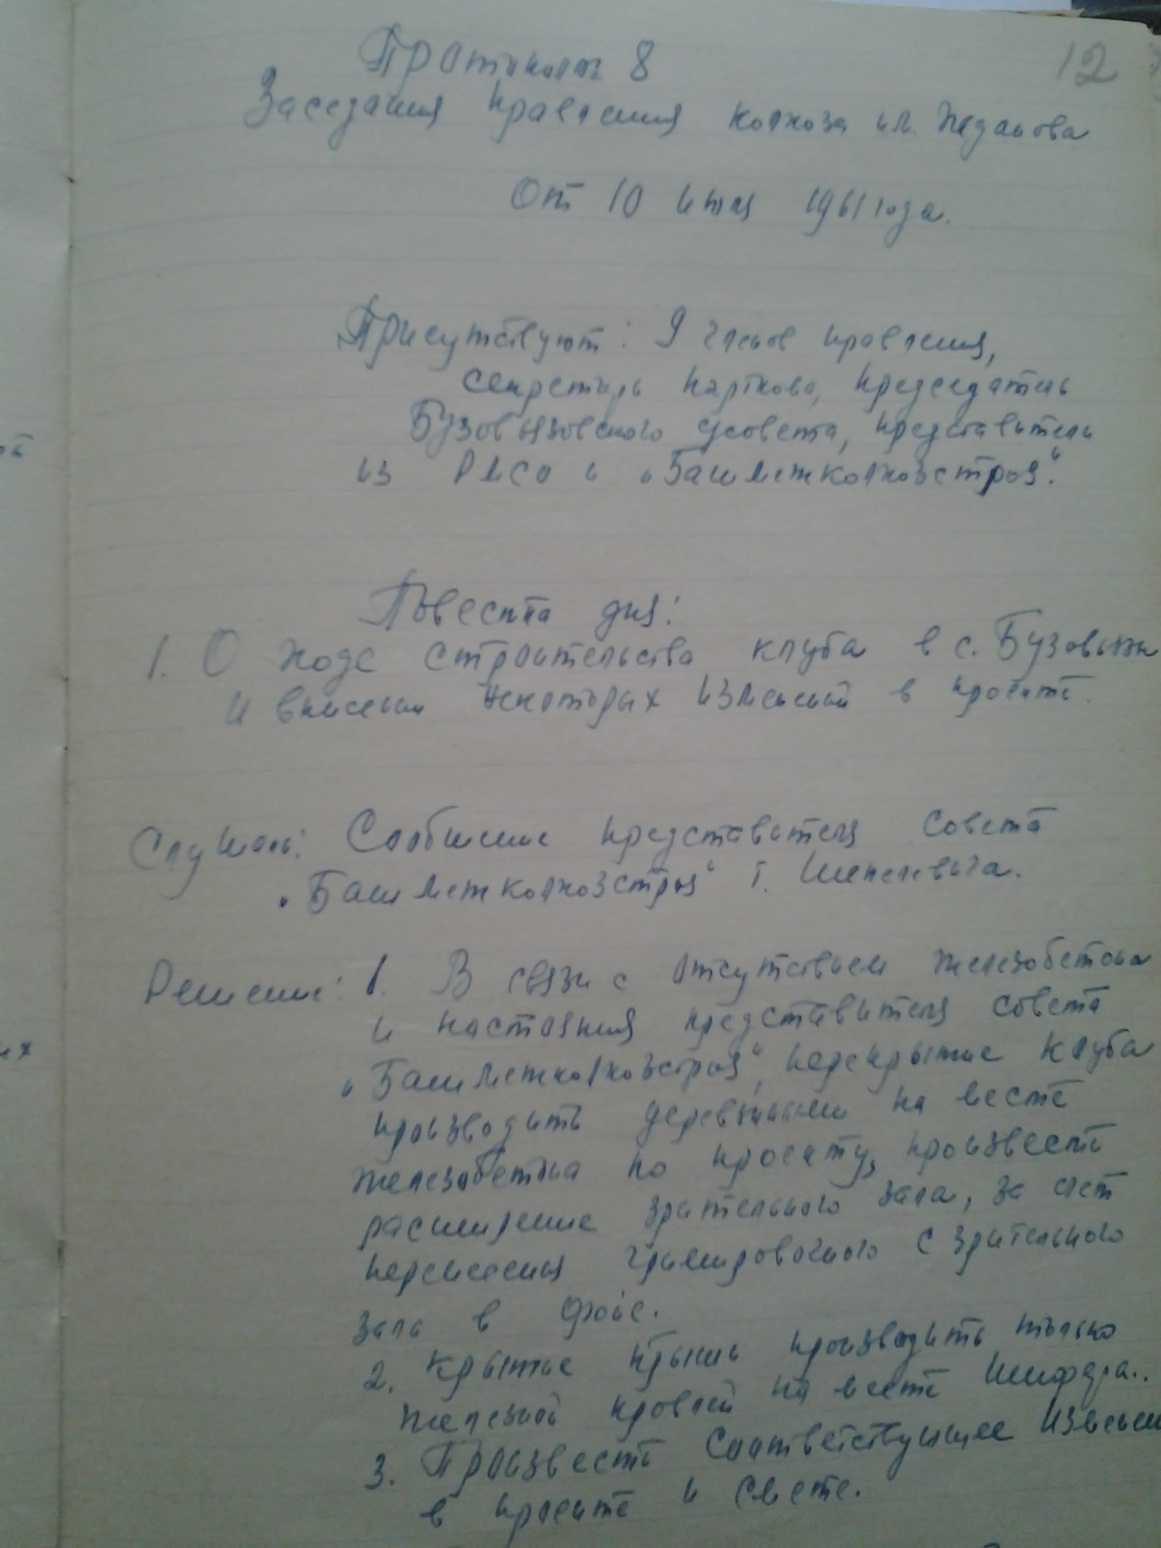 12
Протокол 8
Заседания правления колхоза им. Жданова
От 10 1961 года.
Присутствуют: 9 членов правления,
секретарь парткома, председатель
Бузовьязовского с/совета, представители
из РМСО и „Башмежколхозстроя".
Повестка дня:
1. О ходе строительства клуба в с. Бузовьязы
и внесении некоторых изменений в проекте.
Слушали: Сообщение представителя совета
„Башмежколхозстроя" т. Шепелевича.
Решение: 1. В связи с отсутствием железобетона
и настояния представителя совета
„Башмежколхозстроя", перекрытие клуба
производить деревянным на месте
железобетона по проекту, произвести
расширение зрительного зала, за счет
перенесения гримировочного с зрительного
зала в фойе.
2. Крытие крыши производить только
железной кровлей на месте шифера.
3. Произвести соответствующее
в проекте и смете.